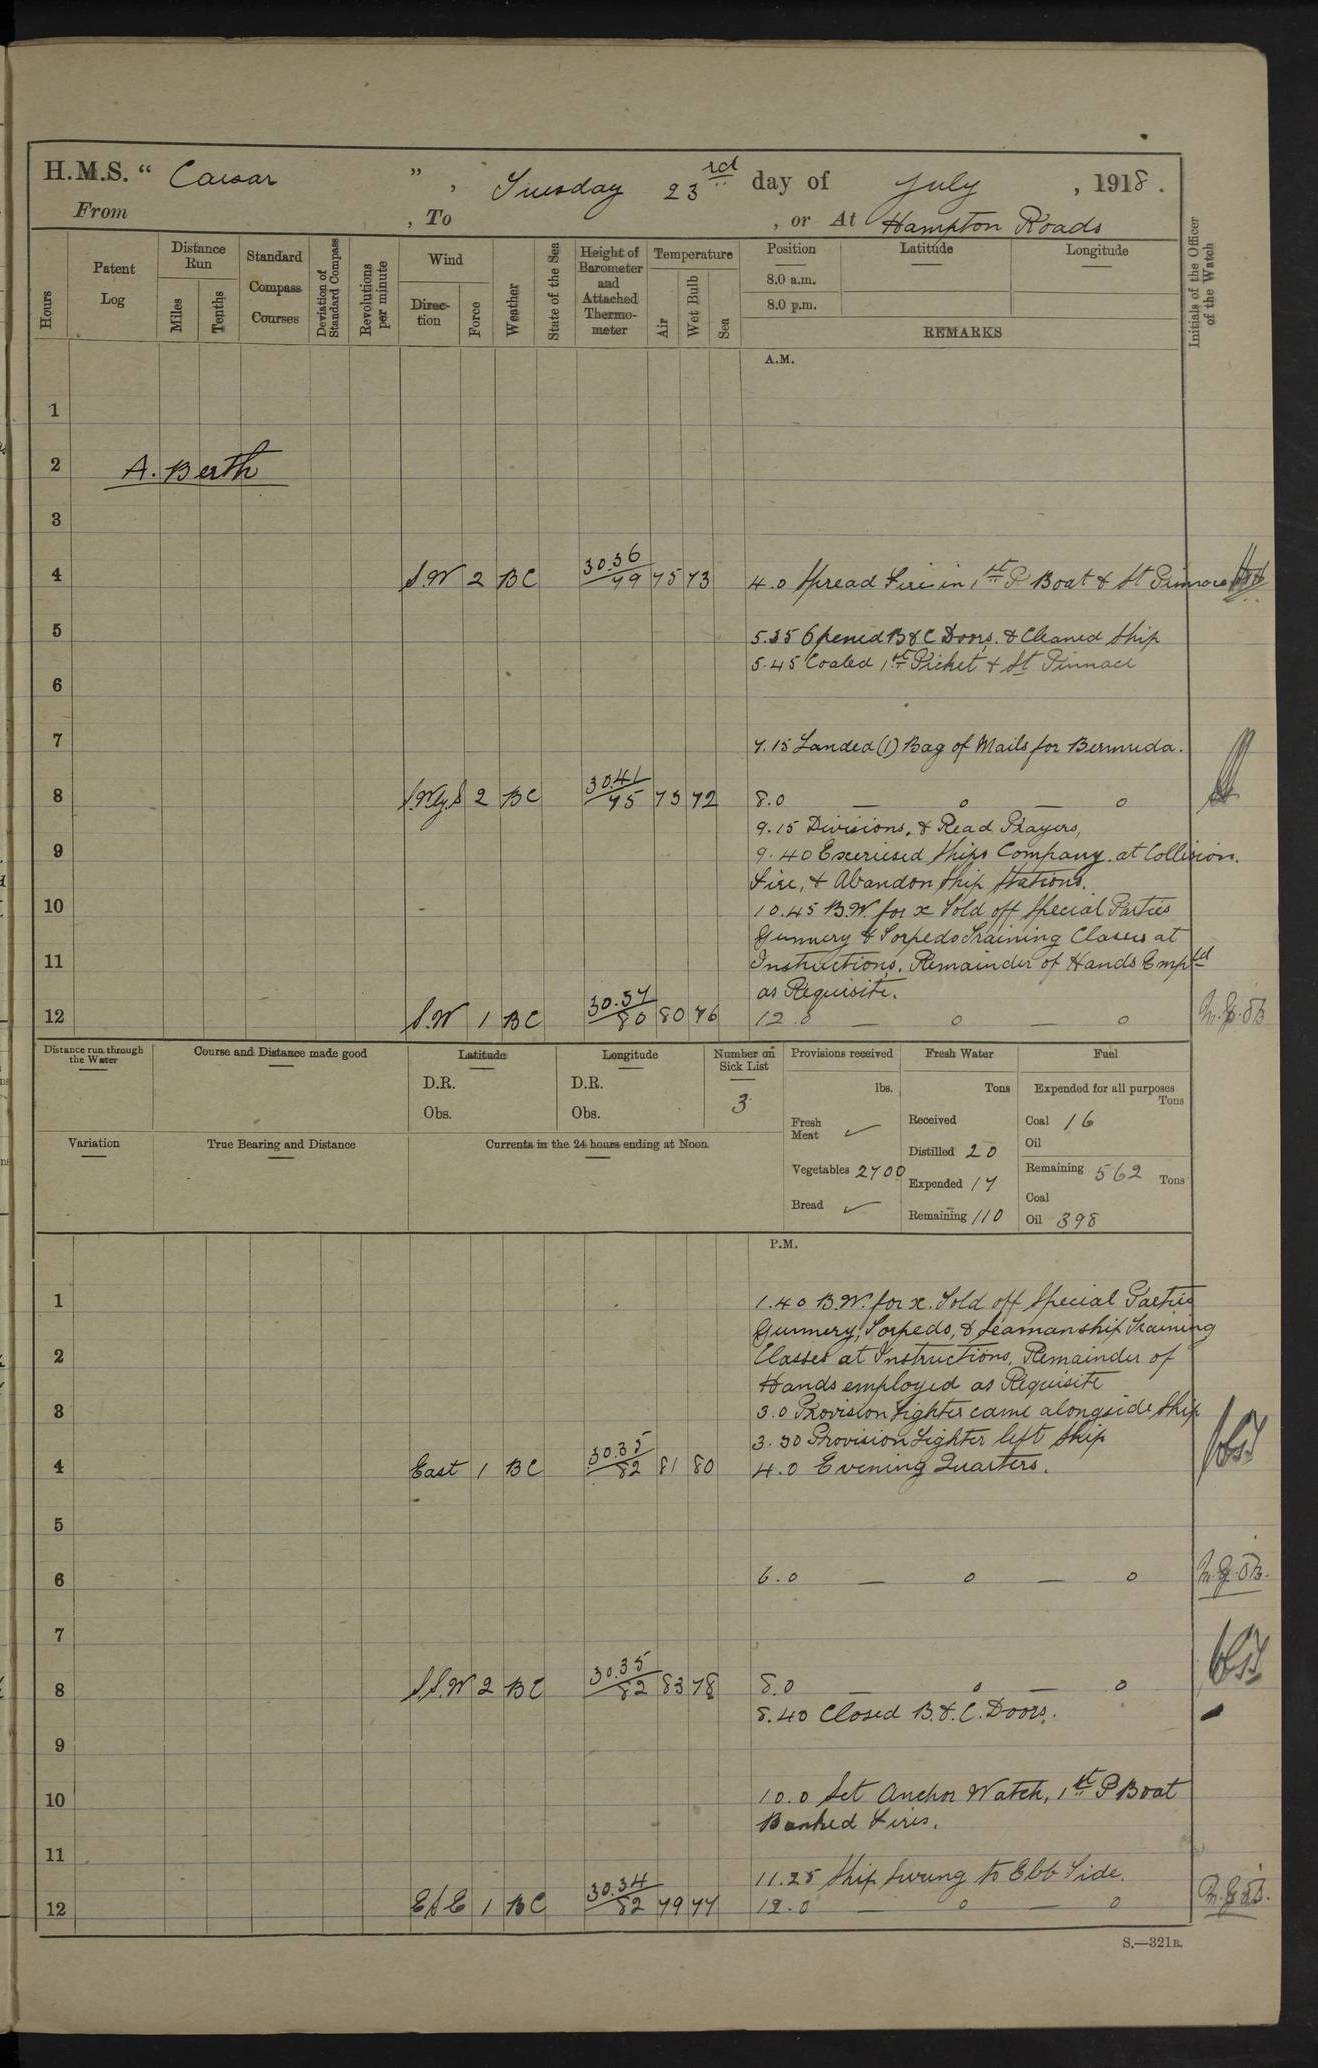 H.M.S. " Caesar " , Tuesday 23rd day of July , 1918 .
From , To , or At Hampton Roads
Hours
Patent Log
Distance Run
Miles
Tenths
Standard Compass Courses
Deviation of Standard Compass
Revolutions per minute
Wind
Direc-tion
Force
Weather
State of the Sea
Height of Barometer and Attached Thermo-meter
Temperature
Air
Wet Bulb
Sea
Position
Latitude
Longitude
8.0 a.m.
8.0 p.m.
REMARKS
Initials of the Officer of the Watch
A.M.
1
2 A. Berth
3
4 S.W 2 BC 30.36/79 75 73 4.0 Spread Fires in 1st P Boat & St Pinnace
5 5.35 Opened B & C Doors. & Cleaned Ship
5.45 Coaled 1st Picket & St Pinnace
6
7 7.15 Landed (1) Bag of Mails for Bermuda.
8 S.W.ly.S 2 BC 30.41/75 73 72 8.0 — o — o
9.15 Divisions, & Read Prayers,
9 9.40 Exercised Ships Company at Collision.
Fire, & Abandon Ship Stations.
10 10.45 B.W. for x Told off Special Parties
Gunnery & Torpedo Training Classes at
11 Instructions. Remainder of Hands Emp'ed
as Requisite.
12 S.W 1 BC 30.37/80 80 76 12.0 — o — o
Distance run through the Water
Course and Distance made good
Latitude
D.R.
Obs.
Longitude
D.R.
Obs.
Number on Sick List
3
Provisions received
lbs.
Fresh Meat ✓
Vegetables 2700
Bread ✓
Fresh Water
Tons
Received
Distilled 20
Expended 17
Remaining 110
Fuel
Expended for all purposes
Tons
Coal 16
Oil
Remaining 562 Tons
Coal
Oil 398
Variation
True Bearing and Distance
Currents in the 24 hours ending at Noon.
P.M.
1 1.40 B.W. for x. Told off Special Parties
Gunnery, Torpedo, & Seamanship Training
2 Classes at Instructions, Remainder of
Hands employed as Requisite
3 3.0 Provision Lighter came alongside Ship
3.30 Provision Lighter left Ship
4 East 1 BC 30.35/82 81 80 4.0 Evening Quarters.
5
6 6.0 — o — o
7
8 S.S.W 2 BC 30.35/82 83 78 8.0 — o — o
8.40 Closed B. & C. Doors.
9
10 10.0 Set Anchor Watch, 1st P Boat
Banked Fires.
11
11.25 Ship Swung to Ebb Tide.
12 ESE 1 BC 30.34/82 79 77 12.0 — o — o
S.—321B.